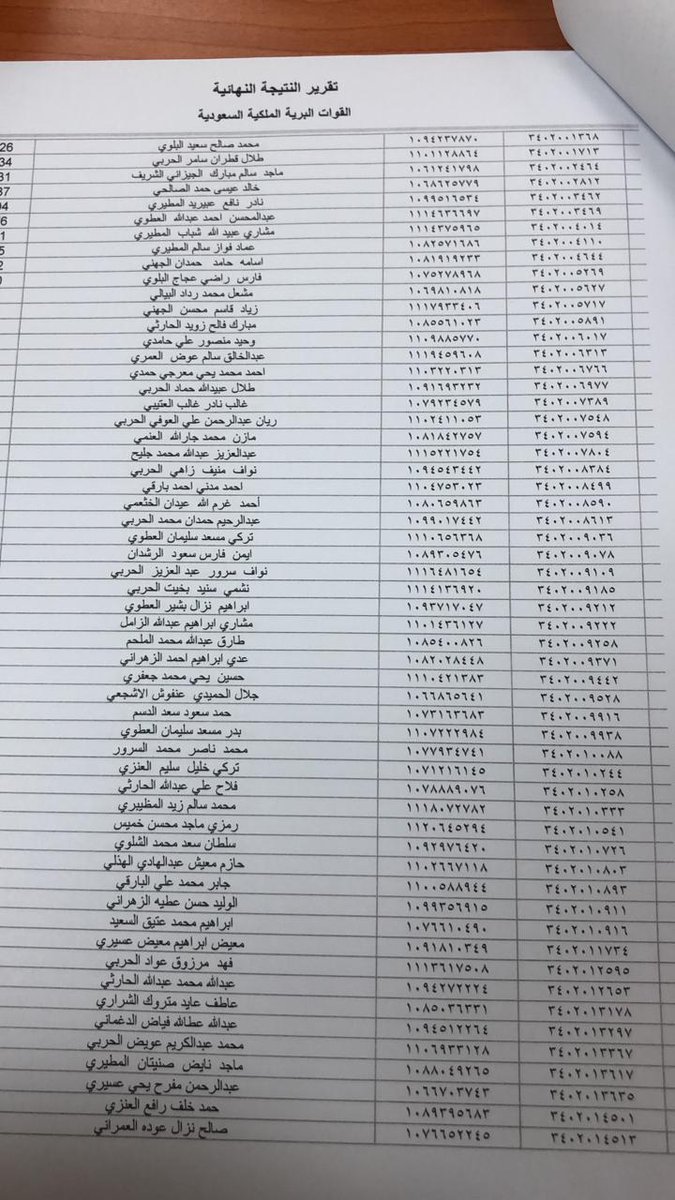 تقرير النتيجة النهائية
القوات البرية الملكية السعودية
٣٤٠٢٠٠١٣٦٨ ١٠٩٤٢٣٧٨٧٠ محمد صالح سعيد البلوي 26
٣٤٠٢٠٠١٧١٣ ١١٠١١٢٨٨٦٤ طلال قطران سامر الحربي 34
٣٤٠٢٠٠٢٤٦٤ ١٠٦١٢٤١٧٩٨ ماجد سالم مبارك الجيزاني الشريف 31
٣٤٠٢٠٠٢٨١٢ ١٠٦٨٦٢٥٧٧٩ خالد عيسى حمد الصالحي 37
٣٤٠٢٠٠٣٤٦٢ ١٠٩٩٥١٦٥٣٤ نادر نافع عبيريد المطيري 94
٣٤٠٢٠٠٣٤٦٩ ١١١٤٦٣٦٦٩٧ عبدالمحسن احمد عبدالله العطوي 6
٣٤٠٢٠٠٤٠١٤ ١١١٤٣٧٥٩٦٥ مشاري عبيد الله شباب المطيري 1
٣٤٠٢٠٠٤١١٠ ١٠٨٢٥٧١٦٨٦ عماد فواز سالم المطيري 5
٣٤٠٢٠٠٤٦٤٤ ١٠٨١٩١٩٢٣٣ اسامه حامد حمدان الجهني 2
٣٤٠٢٠٠٥٢٦٩ ١٠٧٥٢٧٨٩٦٨ فارس راضي عجاج البلوي
٣٤٠٢٠٠٥٦٢٧ ١٠٦٩٨١٠٨١٨ مشعل محمد رداد البيالي
٣٤٠٢٠٠٥٧١٧ ١١١٧٩٣٣٤٠٦ زياد قاسم محسن الجهني
٣٤٠٢٠٠٥٨٩١ ١٠٨٥٥٦١٠٢٣ مبارك فالح زويد الحارثي
٣٤٠٢٠٠٦٠١٧ ١١٠٩٨٨٥٧٧٠ وحيد منصور علي حامدي
٣٤٠٢٠٠٦٣١٣ ١١١٩٤٥٩٦٠٨ عبدالخالق سالم عوض العمري
٣٤٠٢٠٠٦٧٦٦ ١١٠٣٢٢٠٣١٣ احمد محمد يحي معرجي حمدي
٣٤٠٢٠٠٦٩٧٧ ١٠٩١٦٩٣٢٣٢ طلال عبيدالله حماد الحربي
٣٤٠٢٠٠٧٣٨٩ ١٠٧٩٢٣٤٥٧٩ غالب نادر غالب العتيبي
٣٤٠٢٠٠٧٥٤٨ ١١٠٢٤١١٠٥٣ ريان عبدالرحمن علي العوفي الحربي
٣٤٠٢٠٠٧٥٩٤ ١٠٨١٨٤٢٧٥٧ مازن محمد جارالله العنمي
٣٤٠٢٠٠٧٨٠٤ ١١١٥٢٢١٧٥٤ عبدالعزيز عبدالله محمد جليح
٣٤٠٢٠٠٨٣٨٤ ١٠٩٤٥٤٣٤٤٢ نواف منيف زاهي الحربي
٣٤٠٢٠٠٨٤٩٩ ١١٠٤٧٥٣٠٢٣ احمد مدني احمد بارقي
٣٤٠٢٠٠٨٥٩٠ ١٠٨٠٦٥٩٨٦٣ أحمد غرم الله عيدان الخثعمي
٣٤٠٢٠٠٨٦١٣ ١٠٩٩٠١٧٤٤٢ عبدالرحيم حمدان محمد الحربي
٣٤٠٢٠٠٩٠٣٦ ١١١٠٦٥٦٣٦٨ تركي مسعد سليمان العطوي
٣٤٠٢٠٠٩٠٧٨ ١٠٨٩٣٠٥٤٧٦ ايمن فارس سعود الرشدان
٣٤٠٢٠٠٩١٠٩ ١١١٦٤٨١٦٥٤ نواف سرور عبد العزيز الحربي
٣٤٠٢٠٠٩١٨٥ ١١١٤١٣٦٩٢٠ نشمي سنيد بخيت الحربي
٣٤٠٢٠٠٩٢١٢ ١٠٩٣٧١٧٠٤٧ ابراهيم نزال بشير العطوي
٣٤٠٢٠٠٩٢٢٢ ١١٠١٤٣٦١٢٧ مشاري ابراهيم عبدالله الزامل
٣٤٠٢٠٠٩٢٥٨ ١٠٨٥٤٠٠٨٢٦ طارق عبدالله محمد الملحم
٣٤٠٢٠٠٩٣٧١ ١٠٨٢٠٢٨٤٤٨ عدي ابراهيم احمد الزهراني
٣٤٠٢٠٠٩٤٤٢ ١١١٠٤٢١٣٨٣ حسين يحي محمد جعفري
٣٤٠٢٠٠٩٥٢٨ ١٠٦٦٨٦٥٦٤١ جلال الحميدي عنفوش الاشجعي
٣٤٠٢٠٠٩٩١٦ ١٠٧٣١٦٣٦٨٣ حمد سعود سعد الدسم
٣٤٠٢٠٠٩٩٣٨ ١١٠٧٢٢٢٩٨٤ بدر مسعد سليمان العطوي
٣٤٠٢٠١٠٠٨٨ ١٠٧٧٩٣٤٧٤١ محمد ناصر محمد السرور
٣٤٠٢٠١٠٢٤٤ ١٠٧١٢١٦١٤٥ تركي خليل سليم العنزي
٣٤٠٢٠١٠٢٥٨ ١٠٧٨٨٨٩٠٧٦ فلاح علي عبدالله الحارثي
٣٤٠٢٠١٠٣٣٣ ١١١٨٠٧٢٧٨٢ محمد سالم زيد المظيبري
٣٤٠٢٠١٠٥٤١ ١١٢٠٦٤٥٢٩٤ رمزي ماجد محسن خميس
٣٤٠٢٠١٠٧٢٦ ١٠٩٢٩٧٦٤٢٠ سلطان سعد محمد الشلوي
٣٤٠٢٠١٠٨٠٣ ١١٠٢٦٦٧١١٨ حازم معيش عبدالهادي الهذلي
٣٤٠٢٠١٠٨٩٣ ١١٠٠٥٨٨٩٤٤ جابر محمد علي البارقي
٣٤٠٢٠١٠٩١١ ١٠٩٩٣٥٦٩١٥ الوليد حسن عطيه الزهراني
٣٤٠٢٠١٠٩١٦ ١٠٧٦٦١٠٤٩٠ ابراهيم محمد عتيق السعيد
٣٤٠٢٠١١٧٣٤ ١٠٩١٨١٠٣٤٩ معيض ابراهيم معيض عسيري
٣٤٠٢٠١٢٥٩٥ ١١١٣٦١٧٥٠٨ فهد مرزوق عواد الحربي
٣٤٠٢٠١٢٦٥٣ ١٠٩٤٢٧٢٢٢٤ عبدالله محمد عبدالله الحارثي
٣٤٠٢٠١٣١٧٨ ١٠٨٥٠٣٦٣٣١ عاطف عايد متروك الشراري
٣٤٠٢٠١٣٢٩٧ ١٠٩٤٥١٢٢٦٤ عبدالله عطاالله فياض الدغماني
٣٤٠٢٠١٣٣٦٧ ١١٠٦٩٣٣١٢٨ محمد عبدالكريم عويض الحربي
٣٤٠٢٠١٣٦١٧ ١٠٨٨٠٤٩٢٦٥ ماجد نايض صنيتان المطيري
٣٤٠٢٠١٣٦٣٥ ١٠٦٦٧٠٣٧٤٣ عبدالرحمن مفرح يحي عسيري
٣٤٠٢٠١٤٥٠١ ١٠٨٩٣٩٥٦٨٣ حمد خلف رافع العنزي
٣٤٠٢٠١٤٥١٣ ١٠٧٦٦٥٢٢٤٥ صالح نزال عوده العمراني